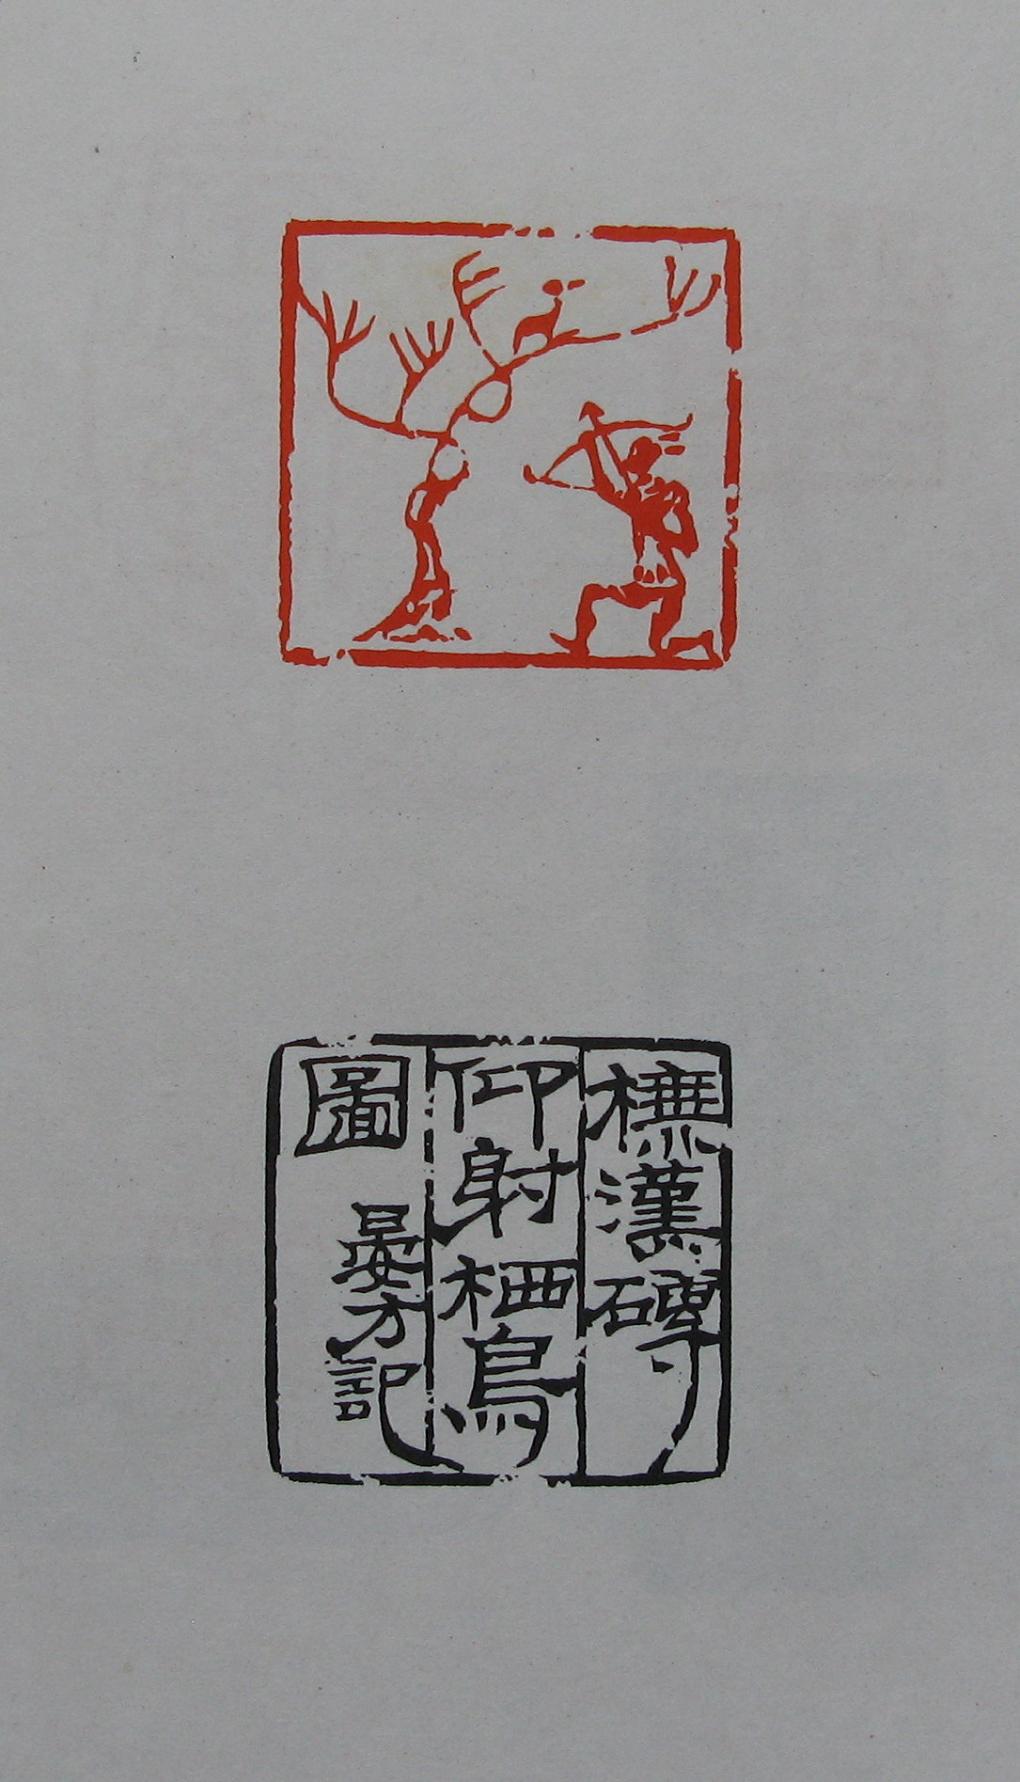 橅漢磚
仰射栖鳥
圖
晏方記